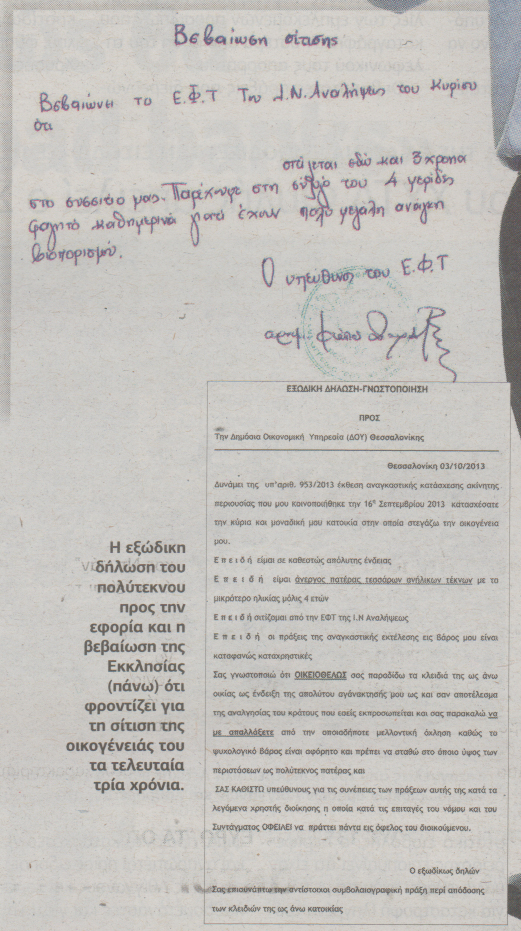 Βεβαίωση σίτισης
Βεβαιώνει το Ε.Φ.Τ Του Ι.Ν. Αναλήψεως του Κυρίου
ότι
σιτίζεται εδώ και 3 χρόνια
στο συσσίτιο μας. Παρέχουμε στη σύζυγό του 4 μερίδες
φαγητό καθημερινά γιατί έχουν πολύ μεγάλη ανάγκη
βιοπορισμού.
Ο υπεύθυνος του Ε.Φ.Τ
ΕΞΩΔΙΚΗ ΔΗΛΩΣΗ-ΓΝΩΣΤΟΠΟΙΗΣΗ
ΠΡΟΣ
Την Δημόσια Οικονομική Υπηρεσία (ΔΟΥ) Θεσσαλονίκης
Θεσσαλονίκη 03/10/2013
Δυνάμει της υπ'αριθ. 953/2013 έκθεση αναγκαστικής κατάσχεσης ακίνητης
περιουσίας που μου κοινοποιήθηκε την 16η Σεπτεμβρίου 2013 κατασχέσατε
την κύρια και μοναδική μου κατοικία στην οποία στεγάζω την οικογένεια
μου.
Ε π ε ι δ ή είμαι σε καθεστώς απόλυτης ένδειας
Ε π ε ι δ ή είμαι άνεργος πατέρας τεσσάρων ανήλικων τέκνων με το
μικρότερο ηλικίας μόλις 4 ετών
Ε π ε ι δ ή σιτίζομαι από την ΕΦΤ της Ι.Ν Αναλήψεως
Ε π ε ι δ ή οι πράξεις της αναγκαστικής εκτέλεσης εις βάρος μου είναι
καταφανώς καταχρηστικές
Σας γνωστοποιώ ότι ΟΙΚΕΙΟΘΕΛΩΣ σας παραδίδω τα κλειδιά της ως άνω
οικίας ως ένδειξη της απολύτου αγανάκτησής μου ως και σαν αποτέλεσμα
της αναλγησίας του κράτους που εσείς εκπροσωπείται και σας παρακαλώ να
με απαλλάξετε από την οποιαδήποτε μελλοντική όχληση καθώς το
ψυχολογικό βάρος είναι αφόρητο και πρέπει να σταθώ στο όποιο ύψος των
περιστάσεων ως πολύτεκνος πατέρας και
ΣΑΣ ΚΑΘΙΣΤΩ υπεύθυνους για τις συνέπειες των πράξεων αυτής της κατά τα
λεγόμενα χρηστής διοίκησης η οποία κατά τις επιταγές του νόμου και του
Συντάγματος ΟΦΕΙΛΕΙ να πράττει πάντα εις όφελος του διοικούμενου.
Ο εξωδίκως δηλών
Σας επισυνάπτω την αντίστοιχη συμβολαιογραφική πράξη περί απόδοσης
των κλειδιών της ως άνω κατοικίας
Η εξώδικη
δήλωση του
πολύτεκνου
προς την
εφορία και η
βεβαίωση της
Εκκλησίας
(πάνω) ότι
φροντίζει για
τη σίτιση της
οικογένειάς του
τα τελευταία
τρία χρόνια.